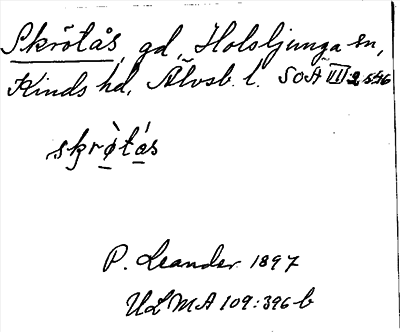 Skrötås, gd, Holsljunga sn,
Kinds hd, Älvsb. l. SOÄ VII 2 s.46
skrö̀tás
P. Leander 1897
ULMA 109:396 b